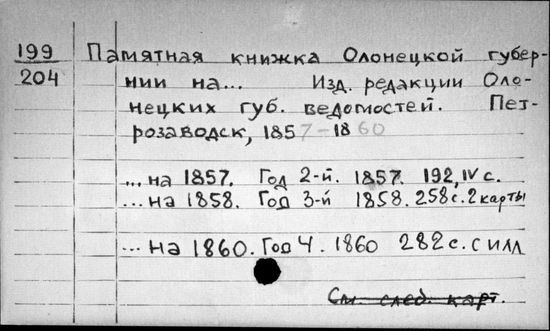 199 Памятная книжка Олонецкой губер-
204 нии на... Изд. редакции Оло-
нецких губ. ведомостей. Пет-
розаводск, 1857-1860
...на 1857. Год 2-й. 1857. 192, IV с.
...на 1858. Год 3-й 1858. 258с. 2 карты
...на 1860. Год 4. 1860 282с. с илл
См. след. карт.